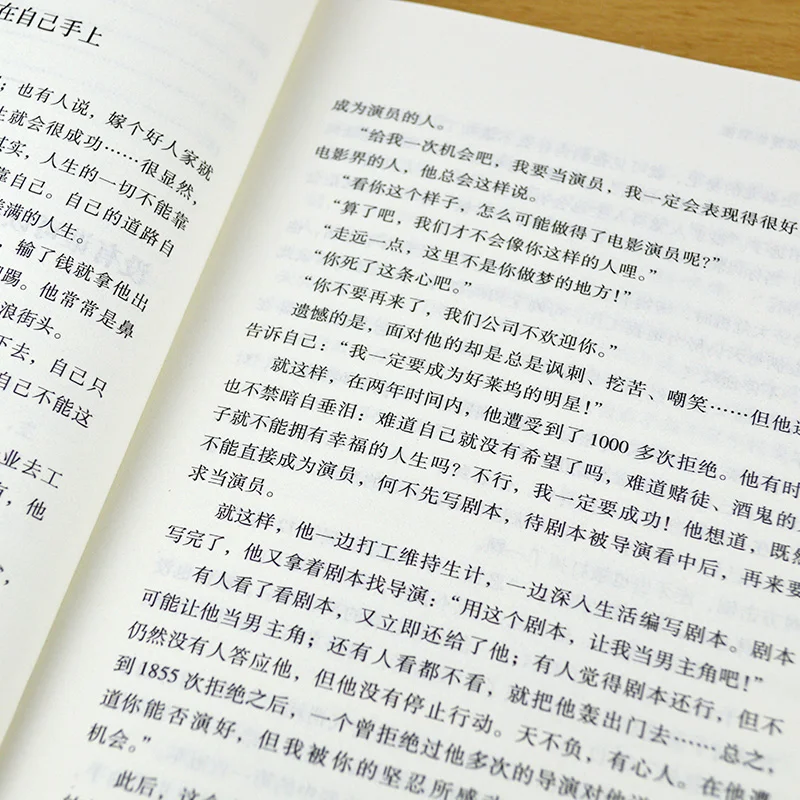 在自己手上
；也有人说，嫁个好人家就
生就会很成功……很显然，
其实，人生的一切不能靠
靠自己。自己的道路自
美满的人生。
；输了钱就拿他出
脚踢。他常常是鼻
浪街头。
下去，自己只
自己不能这
业去工
有，他
成为演员的人。
“给我一次机会吧，我要当演员，我一定会表现得很好
电影界的人，他总会这样说。
“看你这个样子，怎么可能做得了电影演员呢？”
“算了吧，我们才不会像你这样的人哩。”
“走远一点，这里不是你做梦的地方！”
“你死了这条心吧。”
“你不要再来了，我们公司不欢迎你。”
遗憾的是，面对他的却是总是讽刺、挖苦、嘲笑……但他
告诉自己：“我一定要成为好莱坞的明星！”
就这样，在两年时间内，他遭受到了1000多次拒绝。他有时
也不禁暗自垂泪：难道自己就没有希望了吗，难道赌徒、酒鬼的
子就不能拥有幸福的人生吗？不行，我一定要成功！他想道，既然
不能直接成为演员，何不先写剧本，待剧本被导演看中后，再来要
求当演员。
就这样，他一边打工维持生计，一边深入生活编写剧本。剧本
写完了，他又拿着剧本找导演：“用这个剧本，让我当男主角吧！”
有人看了看剧本，又立即还给了他；有人觉得剧本还行，但不
可能让他当男主角；还有人看都不看，就把他轰出门去……总之，
仍然没有人答应他，但他没有停止行动。天不负，有心人。在他遭
到1855次拒绝之后，一个曾拒绝过他多次的导演对他说
道你能否演好，但我被你的坚忍所感
机会。”
此后，这